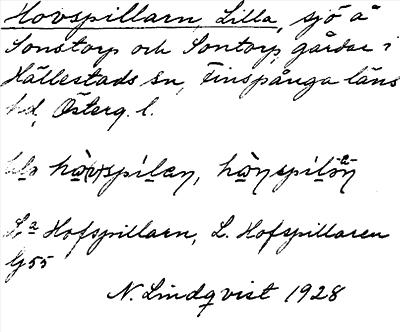 Hovspillarn, Lilla, sjö å
Sonstorp och Sontorp, gårdar i
Hällestads sn, Finspånga läns
hd, Österg. l.
hò(v)spilan, hòn spilön
L:a Hofspillarn, L. Hofspillaren
G 55
N. Lindqvist 1928